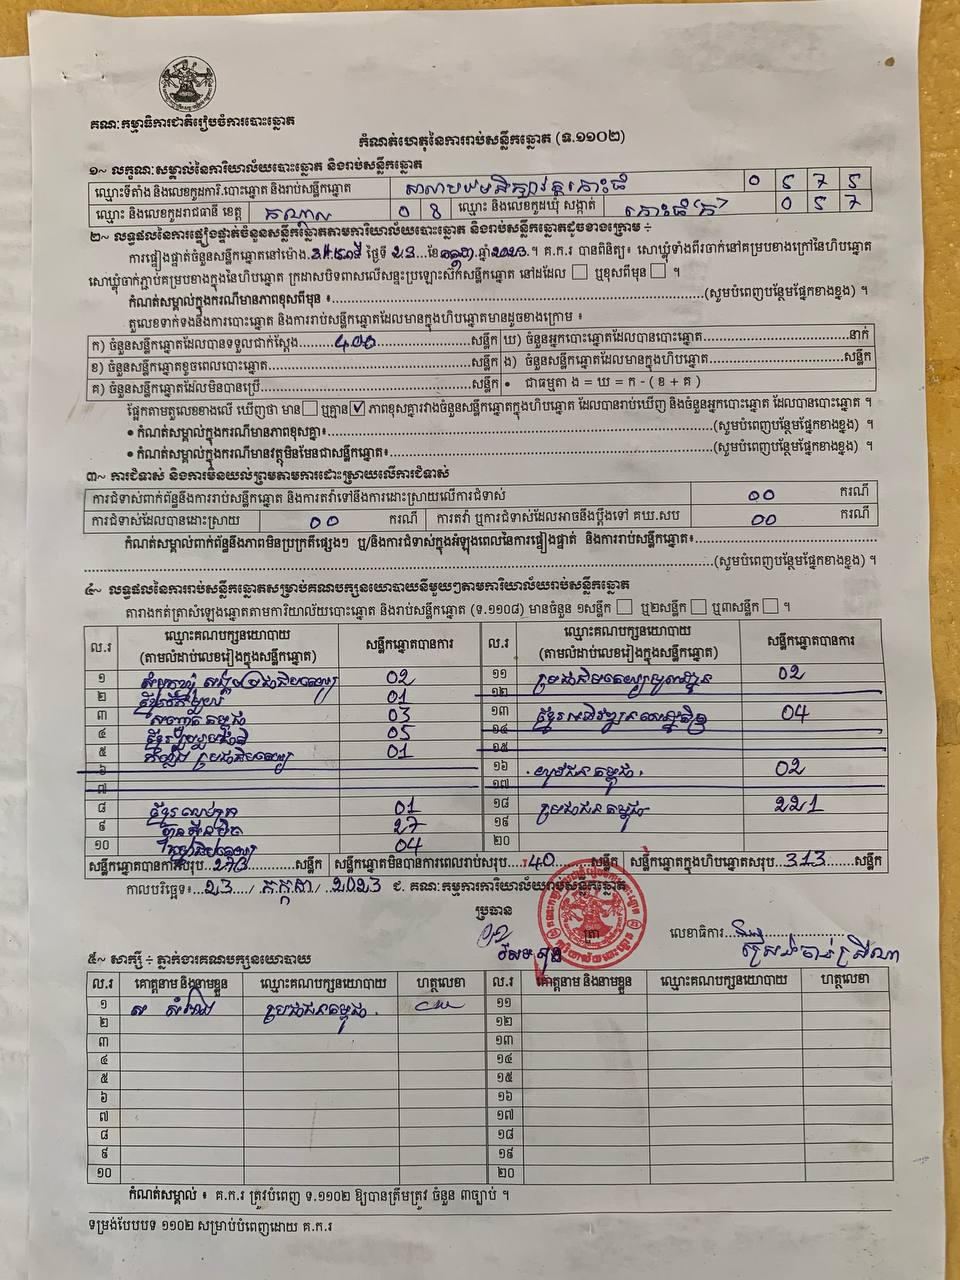 គណៈកម្មាធិការជាតិរៀបចំការបោះឆ្នោត
កំណត់ហេតុនៃការរាប់សន្លឹកឆ្នោត (ទ.១១០២)
១~ លក្ខណៈសម្គាល់នៃការិយាល័យបោះឆ្នោត និងរាប់សន្លឹកឆ្នោត
ឈ្មោះទីតាំង និងលេខកូដការិ.បោះឆ្នោត និងរាប់សន្លឹកឆ្នោត 0 5 7 5
ឈ្មោះ និងលេខកូដរាជធានី ខេត្ត កណ្តាល 0 8 ឈ្មោះ និងលេខកូដឃុំ សង្កាត់ កោះធំ "ក" 0 5 7
២~ លទ្ធផលនៃការផ្ទៀងផ្ទាត់ចំនួនសន្លឹកឆ្នោតតាមការិយាល័យបោះឆ្នោត និងរាប់សន្លឹកឆ្នោតដូចខាងក្រោម ÷
ការផ្ទៀងផ្ទាត់ចំនួនសន្លឹកឆ្នោតនៅម៉ោង ថ្ងៃទី ២៣ ខែ កក្កដា ឆ្នាំ ២០២៣ ។ គ.ក.រ បានពិនិត្យ ៖ សោឃ្លុំទាំងពីរចាក់នៅគម្របខាងក្រៅនៃហិបឆ្នោត
សោឃ្លុំចាក់ភ្ជាប់គម្របខាងក្នុងនៃហិបឆ្នោត ក្រដាសបិទពាសលើសន្ទះប្រឡោះស៊កសន្លឹកឆ្នោត នៅដដែល ឬខុសពីមុន ។
កំណត់សម្គាល់ក្នុងករណីមានភាពខុសពីមុន ៖ (សូមបំពេញបន្ថែមផ្នែកខាងខ្នង) ។
តួលេខទាក់ទងនឹងការបោះឆ្នោត និងការរាប់សន្លឹកឆ្នោតដែលមានក្នុងហិបឆ្នោតមានដូចខាងក្រោម ៖
ក) ចំនួនសន្លឹកឆ្នោតដែលបានទទួលជាក់ស្តែង 400 សន្លឹក ឃ) ចំនួនអ្នកបោះឆ្នោតដែលបានបោះឆ្នោត នាក់
ខ) ចំនួនសន្លឹកឆ្នោតខូចពេលបោះឆ្នោត សន្លឹក ង) ចំនួនសន្លឹកឆ្នោតដែលមានក្នុងហិបឆ្នោត សន្លឹក
គ) ចំនួនសន្លឹកឆ្នោតដែលមិនបានប្រើ សន្លឹក • ជាធម្មតា ង = ឃ = ក - ( ខ + គ )
ផ្អែកតាមតួលេខខាងលើ ឃើញថា មាន ឬគ្មាន ✓ ភាពខុសគ្នារវាងចំនួនសន្លឹកឆ្នោតក្នុងហិបឆ្នោត ដែលបានរាប់ឃើញ និងចំនួនអ្នកបោះឆ្នោត ដែលបានបោះឆ្នោត ។
• កំណត់សម្គាល់ក្នុងករណីមានភាពខុសគ្នា៖ (សូមបំពេញបន្ថែមផ្នែកខាងខ្នង) ។
• កំណត់សម្គាល់ក្នុងករណីមានវត្ថុមិនមែនជាសន្លឹកឆ្នោត៖ (សូមបំពេញបន្ថែមផ្នែកខាងខ្នង) ។
៣~ ការជំទាស់ និងការមិនយល់ព្រមតាមការដោះស្រាយលើការជំទាស់
ការជំទាស់ពាក់ព័ន្ធនឹងការរាប់សន្លឹកឆ្នោត និងការតវ៉ាទៅនឹងការដោះស្រាយលើការជំទាស់ 00 ករណី
ការជំទាស់ដែលបានដោះស្រាយ 00 ករណី ការតវ៉ា ឬការជំទាស់ដែលអាចនឹងប្តឹងទៅ គឃ.សប 00 ករណី
កំណត់សម្គាល់ពាក់ព័ន្ធនឹងភាពមិនប្រក្រតីផ្សេងៗ ឬ/និងការជំទាស់ក្នុងអំឡុងពេលនៃការផ្ទៀងផ្ទាត់ និងការរាប់សន្លឹកឆ្នោត៖
(សូមបំពេញបន្ថែមផ្នែកខាងខ្នង) ។
៤~ លទ្ធផលនៃការរាប់សន្លឹកឆ្នោតសម្រាប់គណបក្សនយោបាយនីមួយៗតាមការិយាល័យរាប់សន្លឹកឆ្នោត
តារាងកត់ត្រាសំឡេងឆ្នោតតាមការិយាល័យបោះឆ្នោត និងរាប់សន្លឹកឆ្នោត (ទ.១១០៨) មានចំនួន ១សន្លឹក ឬ២សន្លឹក ឬ៣សន្លឹក ។
ល.រ ឈ្មោះគណបក្សនយោបាយ (តាមលំដាប់លេខរៀងក្នុងសន្លឹកឆ្នោត) សន្លឹកឆ្នោតបានការ ល.រ ឈ្មោះគណបក្សនយោបាយ (តាមលំដាប់លេខរៀងក្នុងសន្លឹកឆ្នោត) សន្លឹកឆ្នោតបានការ
១ 02 ១១ 02
២ 01 ១២
៣ 03 ១៣ 04
៤ 05 ១៤
៥ 01 ១៥
៦ ១៦ យុវជនកម្ពុជា 02
៧ ១៧
៨ 01 ១៨ ប្រជាជនកម្ពុជា 221
៩ ហ៊្វុនស៊ិនប៉ិច 27 ១៩
១០ 04 ២០
សន្លឹកឆ្នោតបានការសរុប 273 សន្លឹក សន្លឹកឆ្នោតមិនបានការពេលរាប់សរុប 40 សន្លឹក សន្លឹកឆ្នោតក្នុងហិបឆ្នោតសរុប 313 សន្លឹក
កាលបរិច្ឆេទ៖ 23 / កក្កដា / 2023 ជ. គណៈកម្មការការិយាល័យរាប់សន្លឹកឆ្នោត
ប្រធាន
ត្រា លេខាធិការ
៥~ សាក្សី ÷ ភ្នាក់ងារគណបក្សនយោបាយ
ល.រ គោត្តនាម និងនាមខ្លួន ឈ្មោះគណបក្សនយោបាយ ហត្ថលេខា ល.រ គោត្តនាម និងនាមខ្លួន ឈ្មោះគណបក្សនយោបាយ ហត្ថលេខា
១ ប្រជាជនកម្ពុជា ១១
២ ១២
៣ ១៣
៤ ១៤
៥ ១៥
៦ ១៦
៧ ១៧
៨ ១៨
៩ ១៩
១០ ២០
កំណត់សម្គាល់ ៖ គ.ក.រ ត្រូវបំពេញ ទ.១១០២ ឱ្យបានត្រឹមត្រូវ ចំនួន ៣ច្បាប់ ។
ទម្រង់បែបបទ ១១០២ សម្រាប់បំពេញដោយ គ.ក.រ